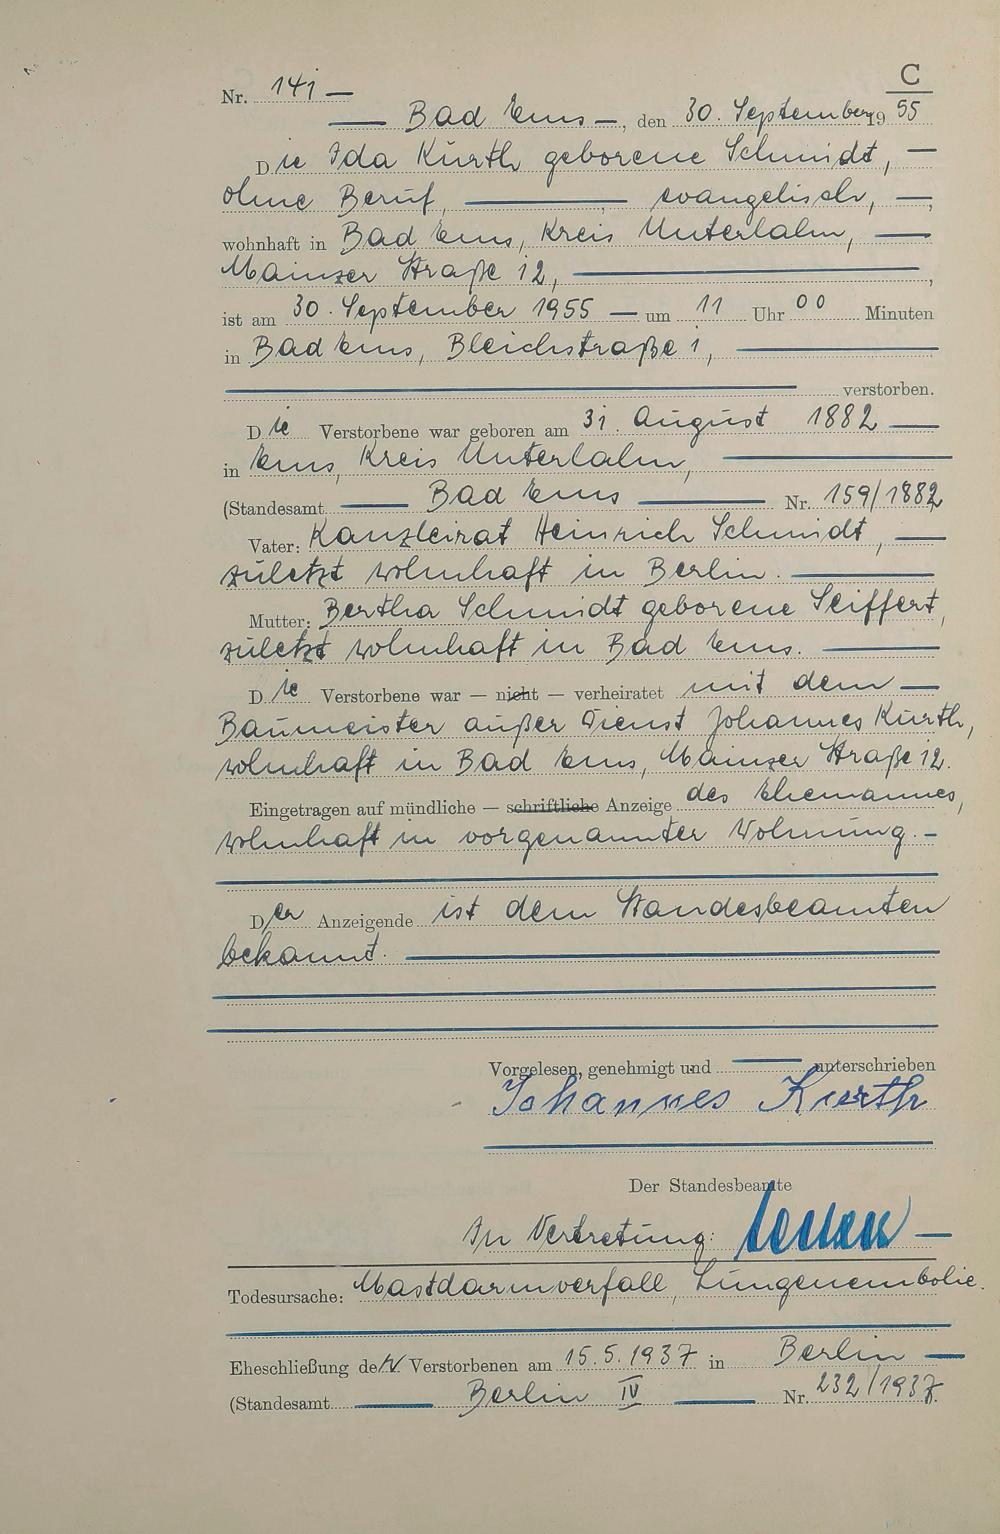 C
Nr. 141
Bad Ems, den 30. September 1955
Die Ida Kurth geborene Schmidt,
ohne Beruf, evangelisch,
wohnhaft in Bad Ems, Kreis Unterlahn,
Mainzer Straße 12,
ist am 30. September 1955 um 11 Uhr 00 Minuten
in Bad Ems, Bleichstraße 1,
verstorben.
Die Verstorbene war geboren am 31. August 1882
in Ems, Kreis Unterlahn,
(Standesamt Bad Ems Nr. 159/1882
Vater: Kanzleirat Heinrich Schmidt,
zuletzt wohnhaft in Berlin.
Mutter: Bertha Schmidt geborene Seiffert,
zuletzt wohnhaft in Bad Ems.
Die Verstorbene war — nicht — verheiratet mit dem
Baumeister außer Dienst Johannes Kurth,
wohnhaft in Bad Ems, Mainzer Straße 12.
Eingetragen auf mündliche — schriftliche Anzeige des Ehemannes,
wohnhaft in vorgenannter Wohnung.
Der Anzeigende ist dem Standesbeamten
bekannt.
Vorgelesen, genehmigt und unterschrieben
Johannes Kurth
Der Standesbeamte
In Vertretung:
Todesursache: Mastdarmvorfall, Lungenembolie.
Eheschließung der Verstorbenen am 15.5.1937 in Berlin
(Standesamt Berlin IV Nr. 232/1937.